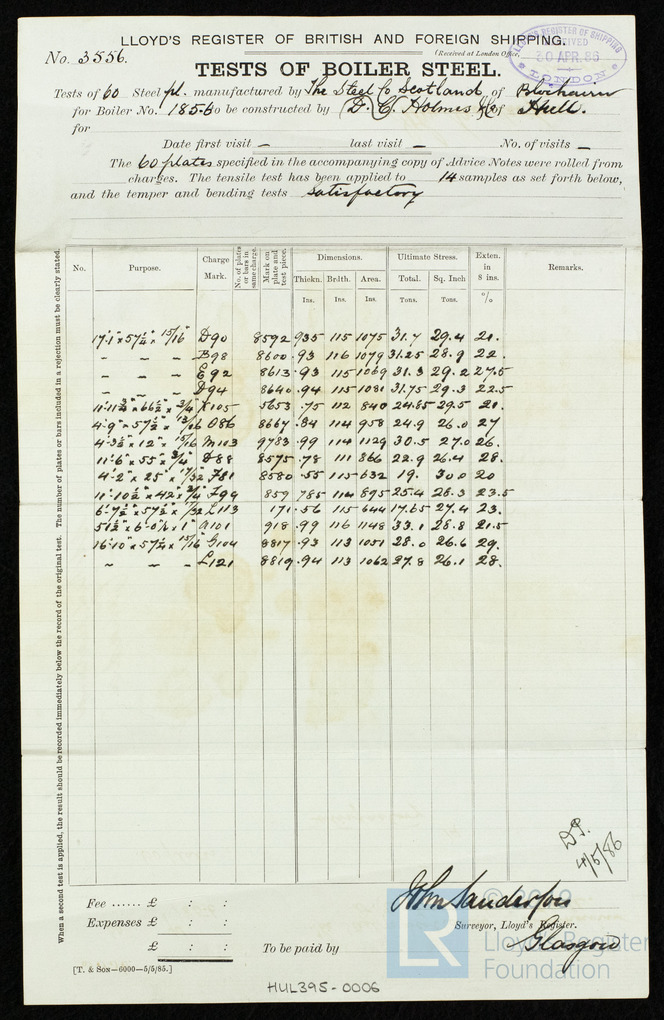 LLOYD'S REGISTER OF BRITISH AND FOREIGN SHIPPING.
No. 3556.
(Received at London Office,
LLOYD'S REGISTER OF SHIPPING
RECEIVED
30 APR. 86
LONDON
TESTS OF BOILER STEEL.
Tests of 60 Steel pl. manufactured by The Steel Co Scotland, of Blochairn
for Boiler No. 185-6 to be constructed by D. C. Holmes & Co of Hull.
for
Date first visit – last visit – No. of visits –
The 60 plates specified in the accompanying copy of Advice Notes were rolled from
charges. The tensile test has been applied to 14 samples as set forth below,
and the temper and bending tests satisfactory
When a second test is applied, the result should be recorded immediately below the record of the original test. The number of plates or bars included in a rejection must be clearly stated.
No. Purpose. Charge Mark. No. of plates or bars in same charge. Mark on plate and test piece. Dimensions. Ultimate Stress. Exten. in 8 ins. Remarks.
Thickn. Brdth. Area. Total. Sq. Inch
Ins. Ins. Ins. Tons. Tons. %
17'1" x 57½" x 15/16" D90 8592 .935 115 1075 31.7 29.4 21.
– – – B98 8600 .93 116 1079 31.25 28.9 22.
– – – E92 8613 .93 115 1069 31.3 29.2 27.5
– – – D94 8640 .94 115 1081 31.75 29.3 22.5
11'11¾" x 66½" x ¾" K105 5653 .75 112 840 24.85 29.5 21.
4'9" x 57½" x 13/16 O86 8667 .84 114 958 24.9 26.0 27
4'3½" x 12" x 15/16 M103 9783 .99 114 1129 30.5 27.0 26.
11'6" x 55" x ¾" D88 8575 .78 111 866 22.9 26.4 28.
4'2" x 25" x 17/32 F81 8580 .55 115 632 19. 30.0 20
11'10½" x 42" x F94 859 .785 114 895 25.4 28.3 23.5
6'7½" x 57½" x 17/32 L113 171 .56 115 644 17.65 27.4 23.
51½" x 6'0¼" x 1" A101 918 .99 116 1148 33.1 28.8 21.5
16'10" x 57¼" x 15/16" G104 8817 .93 113 1051 28.0 26.6 29.
– – – L121 8819 .94 113 1062 27.8 26.1 28.
4/5/86
Fee ...... £ : :
Expenses £ : :
£ : :
To be paid by
John Sanderson
Surveyor, Lloyd's Register.
Glasgow
[T. & Son—6000—5/5/85.]
LR
Lloyd's Register
Foundation
HUL395-0006